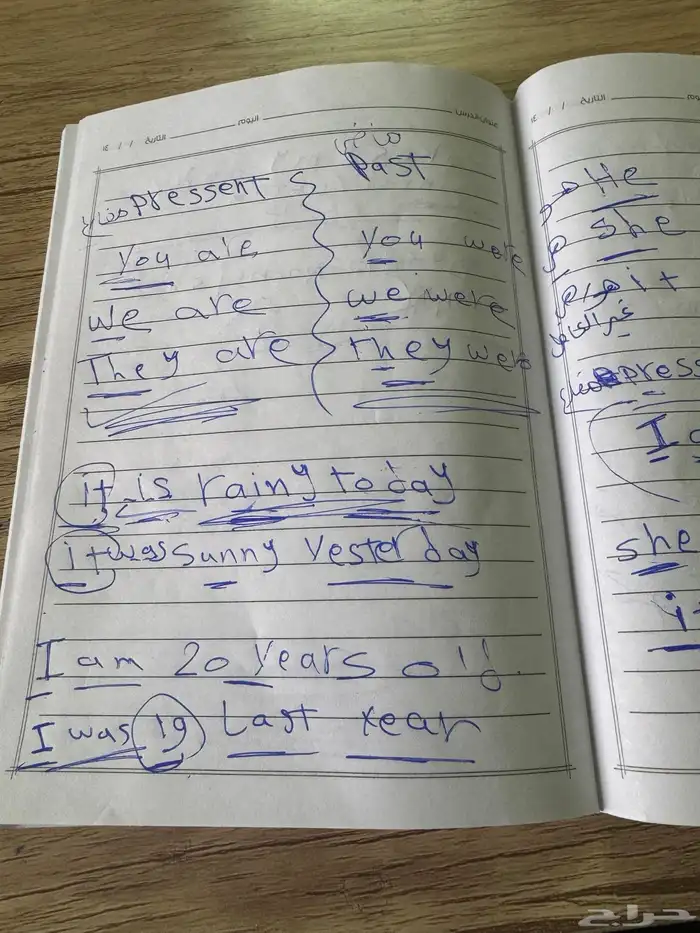 عنوان الدرس اليوم التاريخ / / ١٤
التاريخ / / ١٤ اليوم
ماضي
مضارع pressent past
You are you were
we are we were
They are they were
it is rainy today
it was sunny Yesterday
I am 20 Years old.
I was 19 Last Year
He
she
it
غير العاقل
press
I
she
حراج